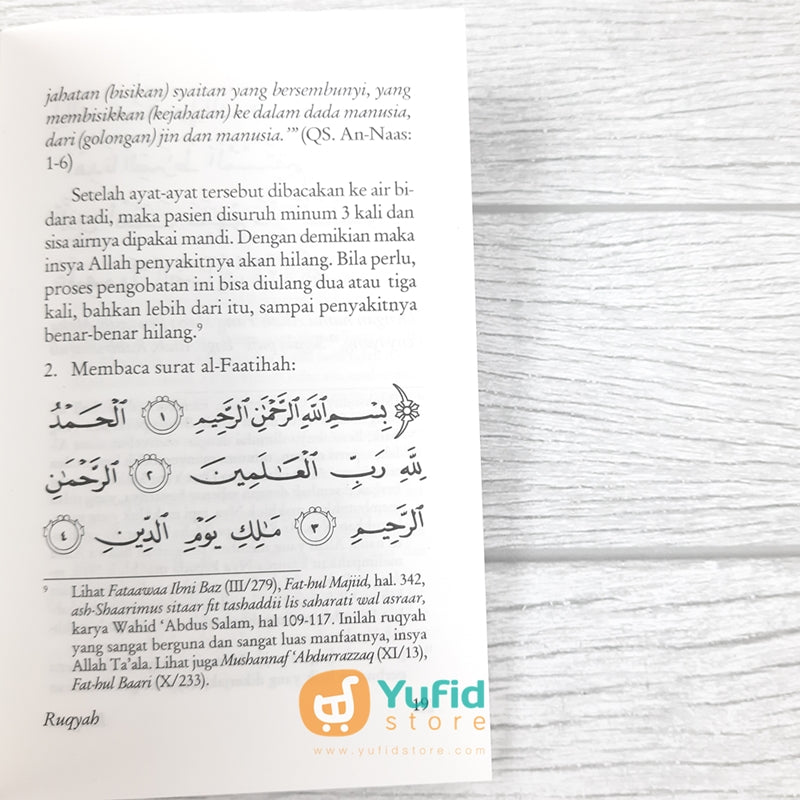 jahatan (bisikan) syaitan yang bersembunyi, yang
membisikkan (kejahatan) ke dalam dada manusia,
dari (golongan) jin dan manusia.'" (QS. An-Naas:
1-6)
Setelah ayat-ayat tersebut dibacakan ke air bi-
dara tadi, maka pasien disuruh minum 3 kali dan
sisa airnya dipakai mandi. Dengan demikian maka
insya Allah penyakitnya akan hilang. Bila perlu,
proses pengobatan ini bisa diulang dua atau tiga
kali, bahkan lebih dari itu, sampai penyakitnya
benar-benar hilang.⁹
2. Membaca surat al-Faatihah:
بِسْمِ ٱللَّهِ ٱلرَّحْمَٰنِ ٱلرَّحِيمِ ١ ٱلْحَمْدُ
لِلَّهِ رَبِّ ٱلْعَٰلَمِينَ ٢ ٱلرَّحْمَٰنِ
ٱلرَّحِيمِ ٣ مَٰلِكِ يَوْمِ ٱلدِّينِ ٤
⁹ Lihat Fataawaa Ibni Baz (III/279), Fat-hul Majiid, hal. 342,
ash-Shaarimus sitaar fit tashaddii lis saharati wal asraar,
karya Wahid 'Abdus Salam, hal 109-117. Inilah ruqyah
yang sangat berguna dan sangat luas manfaatnya, insya
Allah Ta'ala. Lihat juga Mushannaf 'Abdurrazzaq (XI/13),
Fat-hul Baari (X/233).
Ruqyah 19
Yufid
store
www.yufidstore.com